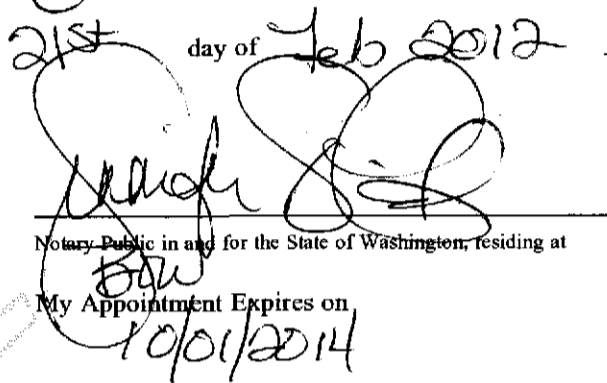 21st day of Feb 2012
Notary Public in and for the State of Washington, residing at
Bow
My Appointment Expires on
10/01/2014